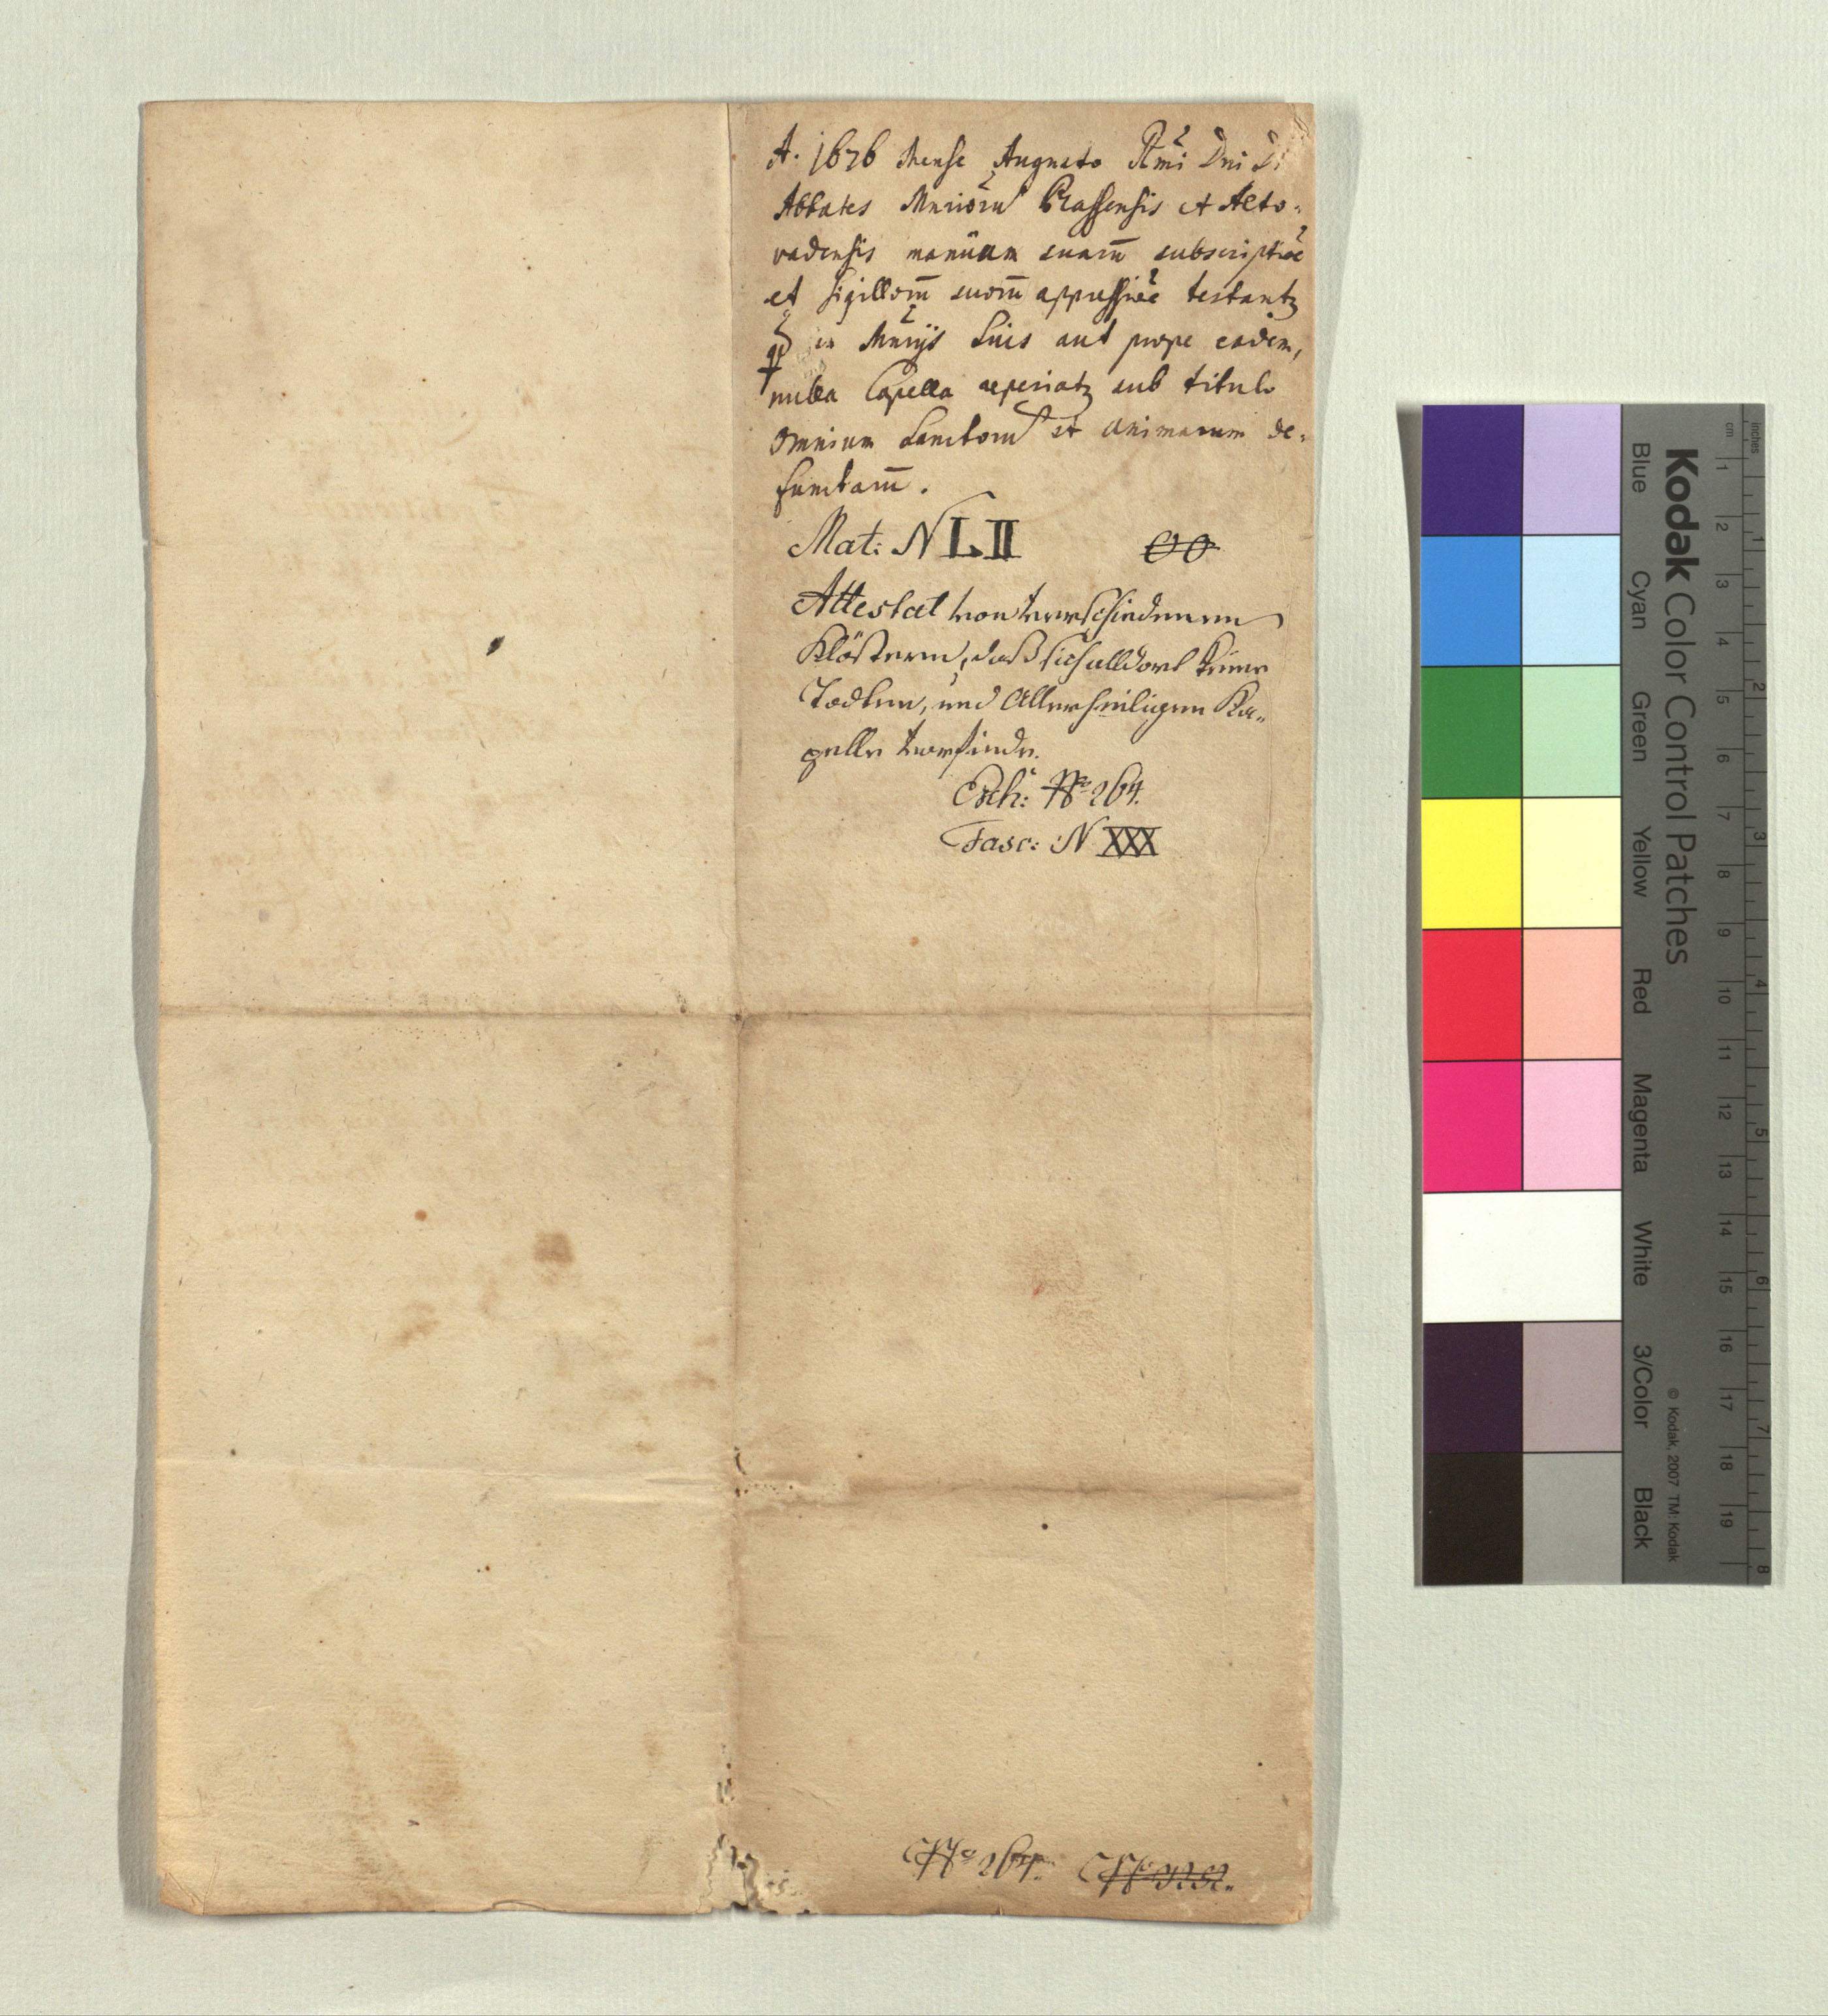 A. 1676 Mense Augusto Rmi Dni D
Abbates Mnriorū Plassensis et Alto-
vadensis manuum suarū subscriptiōe
et sigillorū suorū appressiōe testantr
qd in Mnrijs suis aut prope eadem,
nulla Capella reperiatr sub titulo
omnium Sanctorū et animarum de-
functarū.
Mat: N LII
Attestat von verschiedenen
Klöstern, daß sich alldort keine
Todten, und Allerheiligen Ka-
pelle vorfinde.
Esch: No 264.
Fasc: N XXX
No 264.
Kodak Color Control Patches
Blue Cyan Green Yellow Red Magenta White 3/Color Black
© Kodak, 2007 TM: Kodak
cm 1 2 3 4 5 6 7 8 9 10 11 12 13 14 15 16 17 18 19
inches 1 2 3 4 5 6 7 8